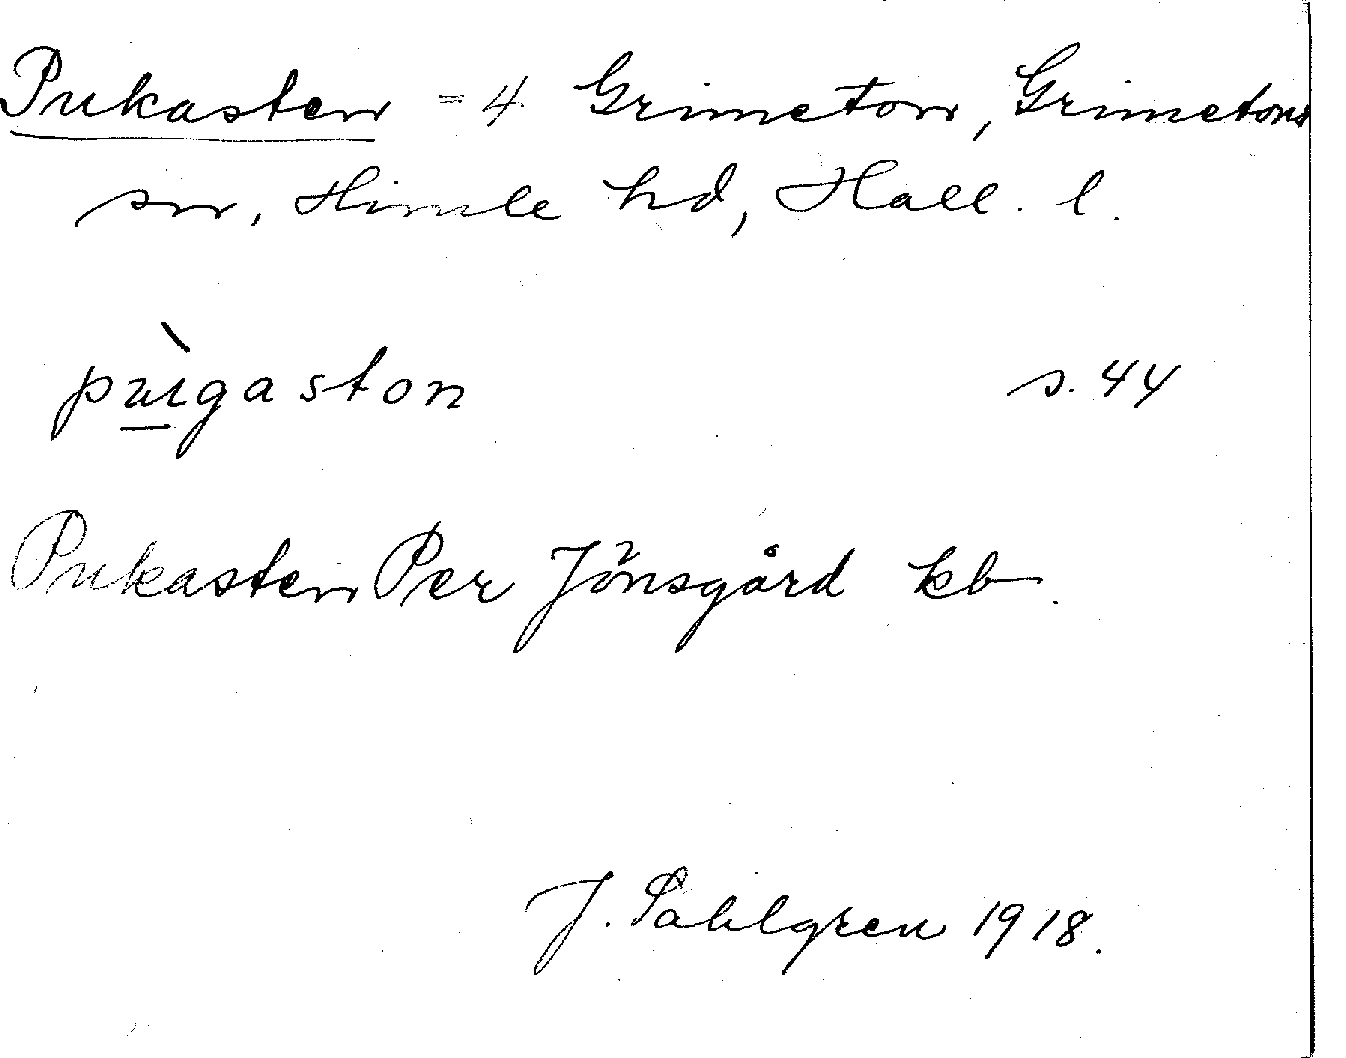 Pukasten = 4 Grimeton, Grimetons
sn, Himle hd, Hall. l.
pùgaston s. 44
Pukasten Per Jönsgård kb.
J. Sahlgren 1918.